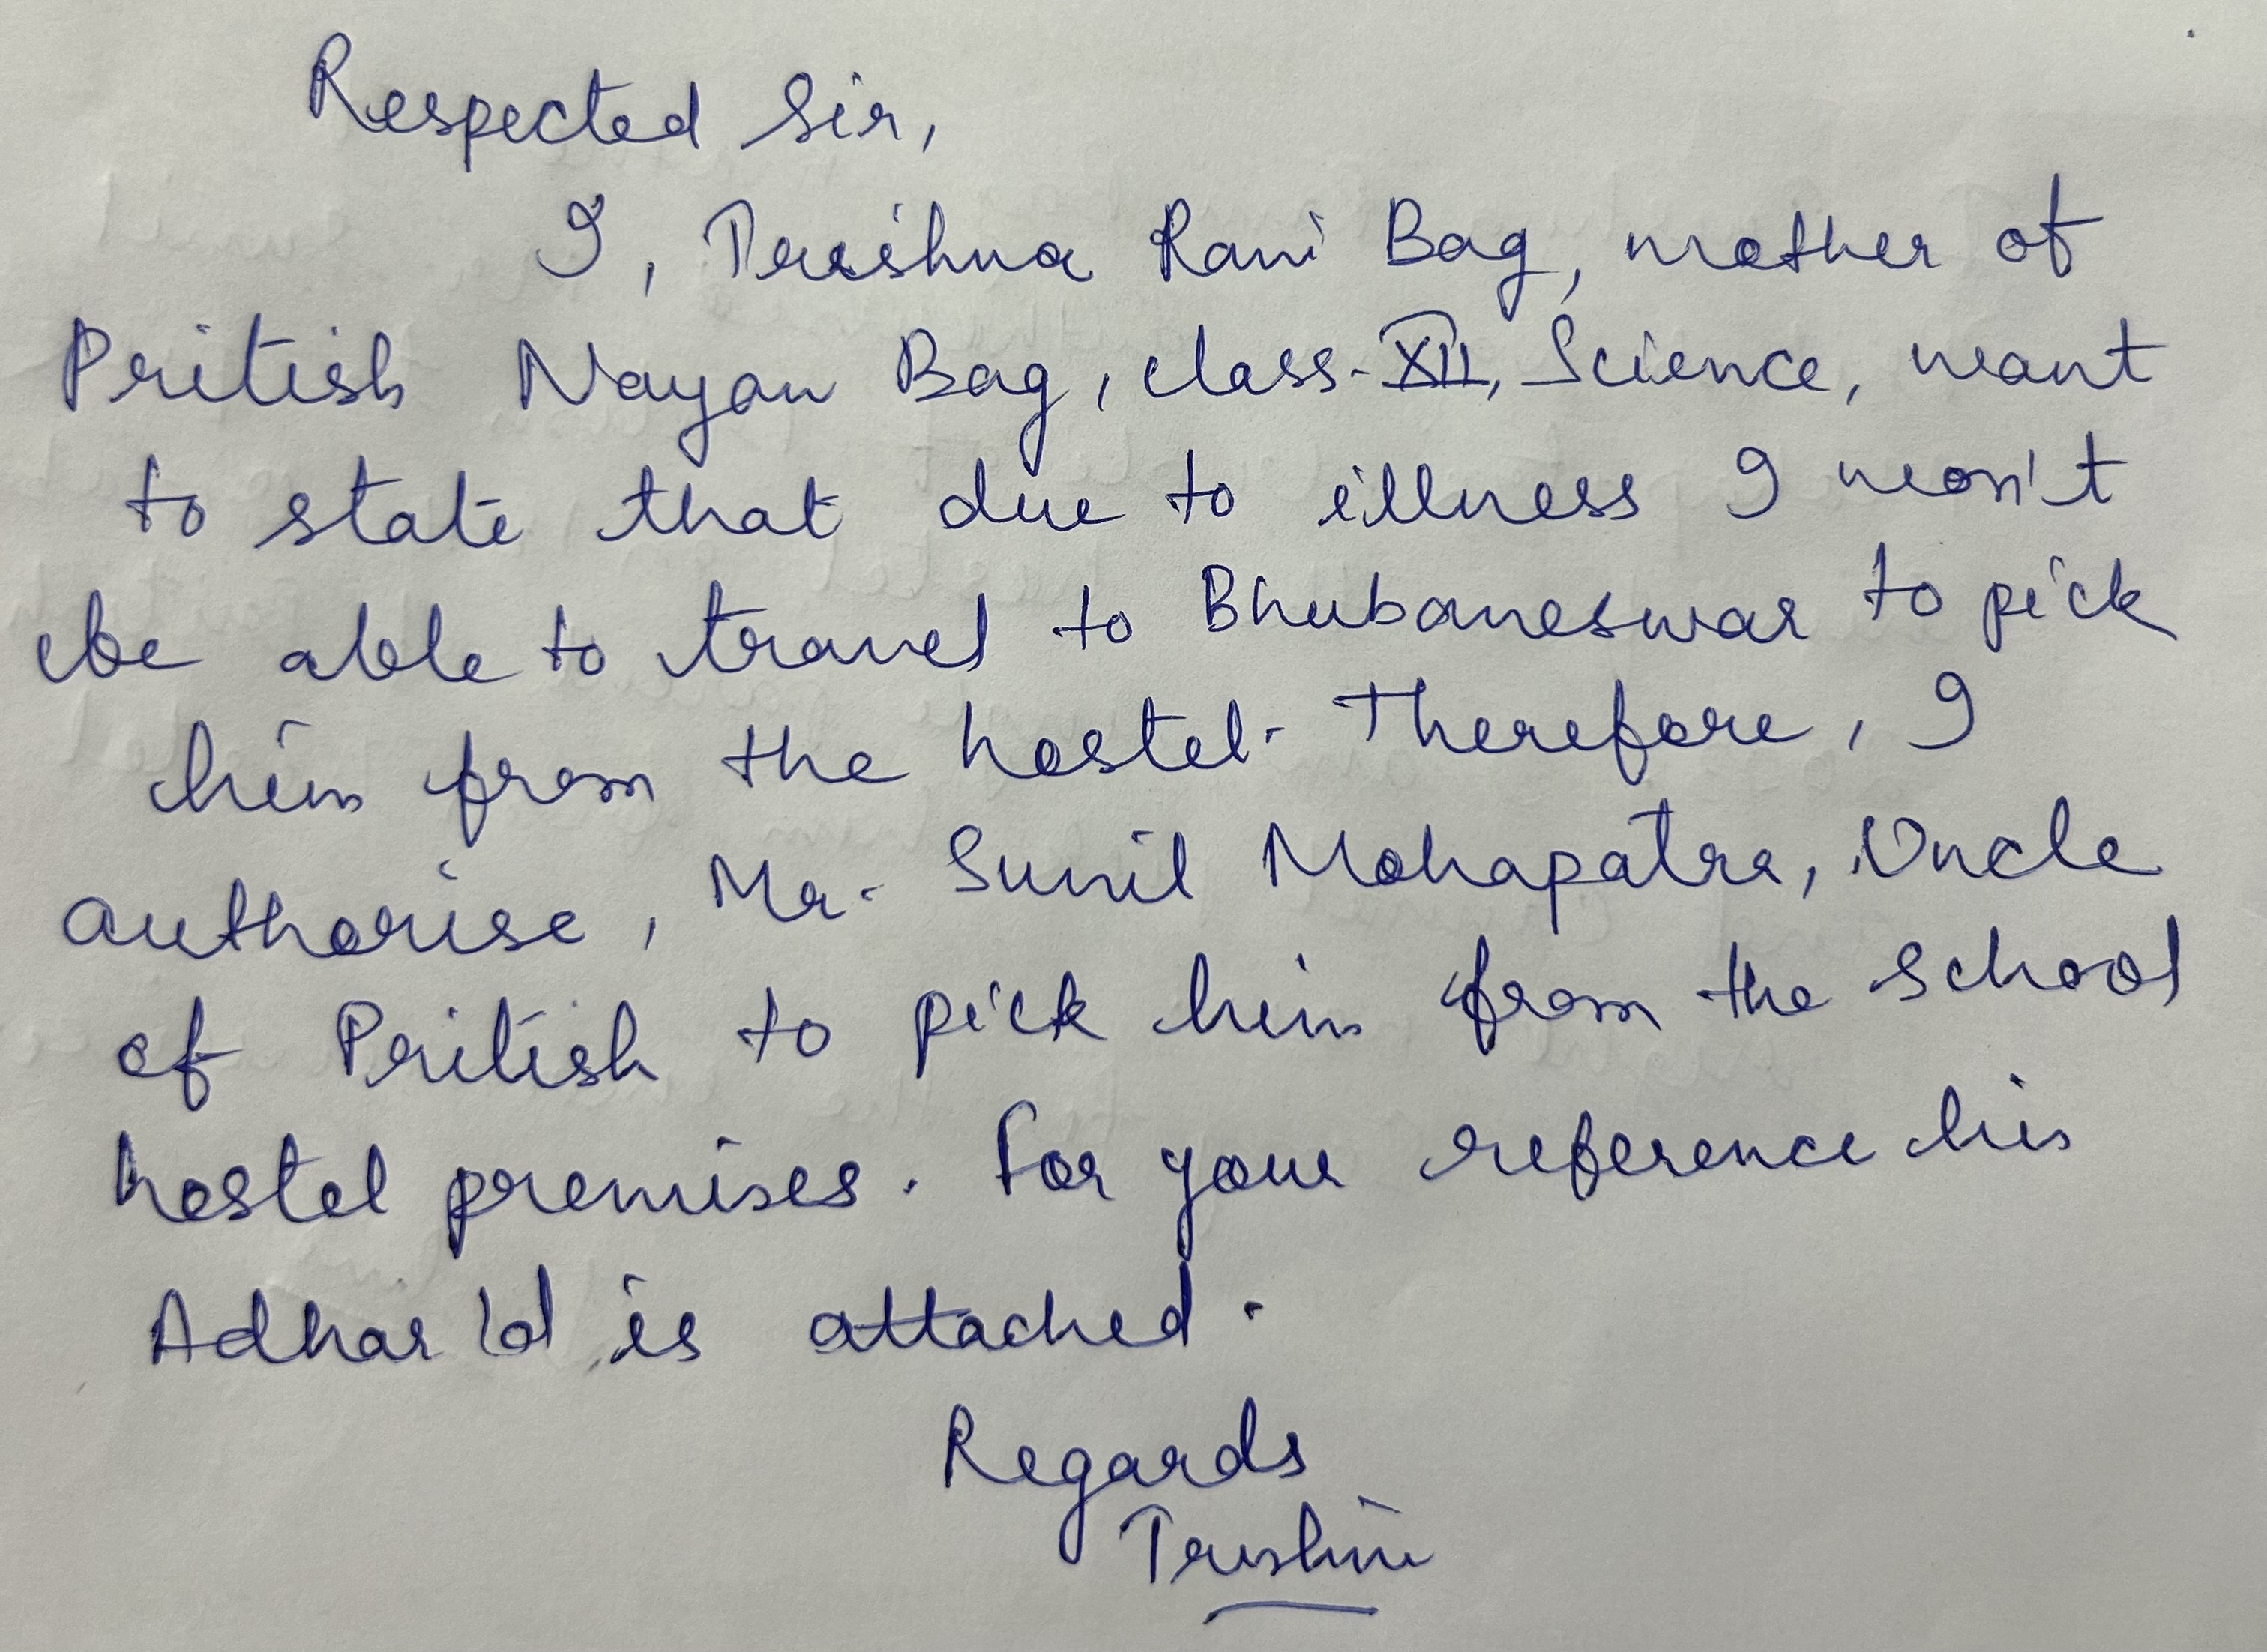 Respected Sir,
I, Trushna Rani Bag, mother of
Pritish Nayan Bag, class-XII, Science, want
to state that due to illness I won't
be able to travel to Bhubaneswar to pick
him from the hostel. Therefore, I
authorise, Mr. Sunil Mohapatra, Uncle
of Pritish to pick him from the school
hostel premises. For your reference his
Adhar Id is attached.
Regards